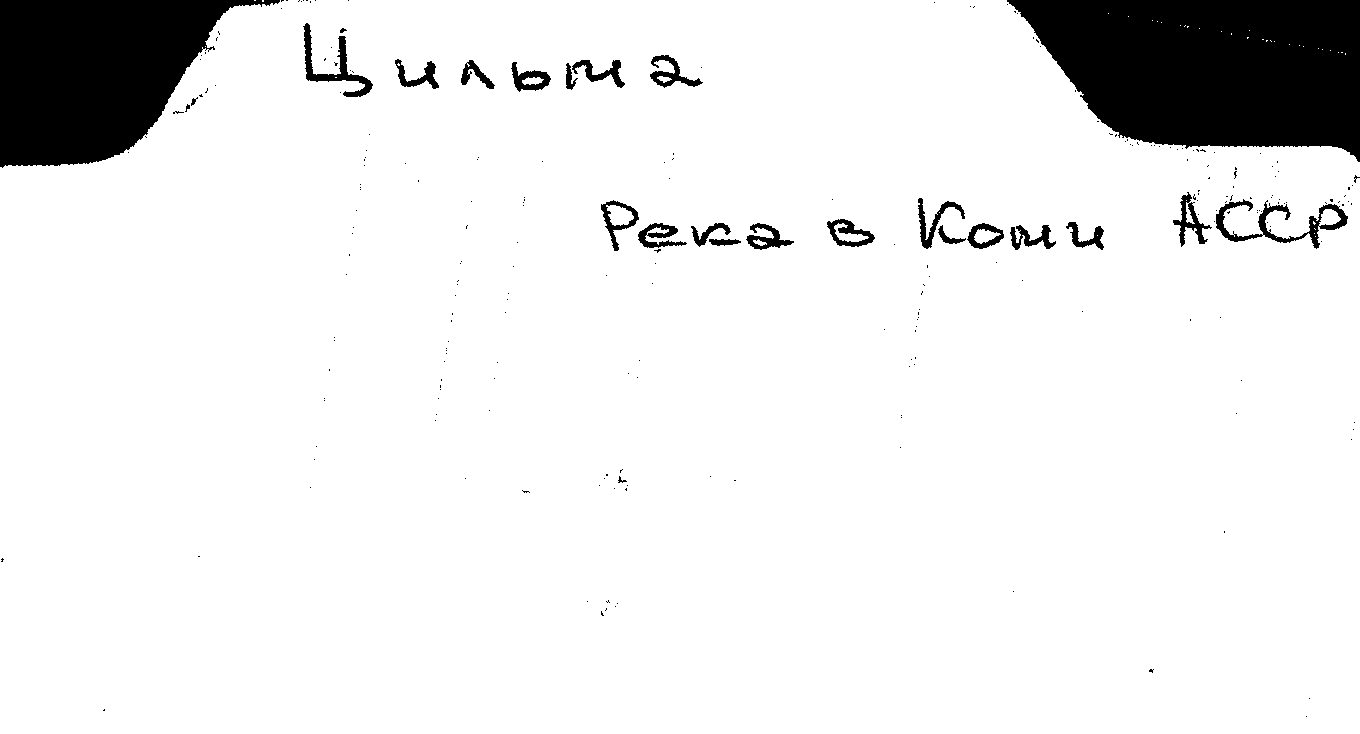 Цильма
Река в Коми АССР